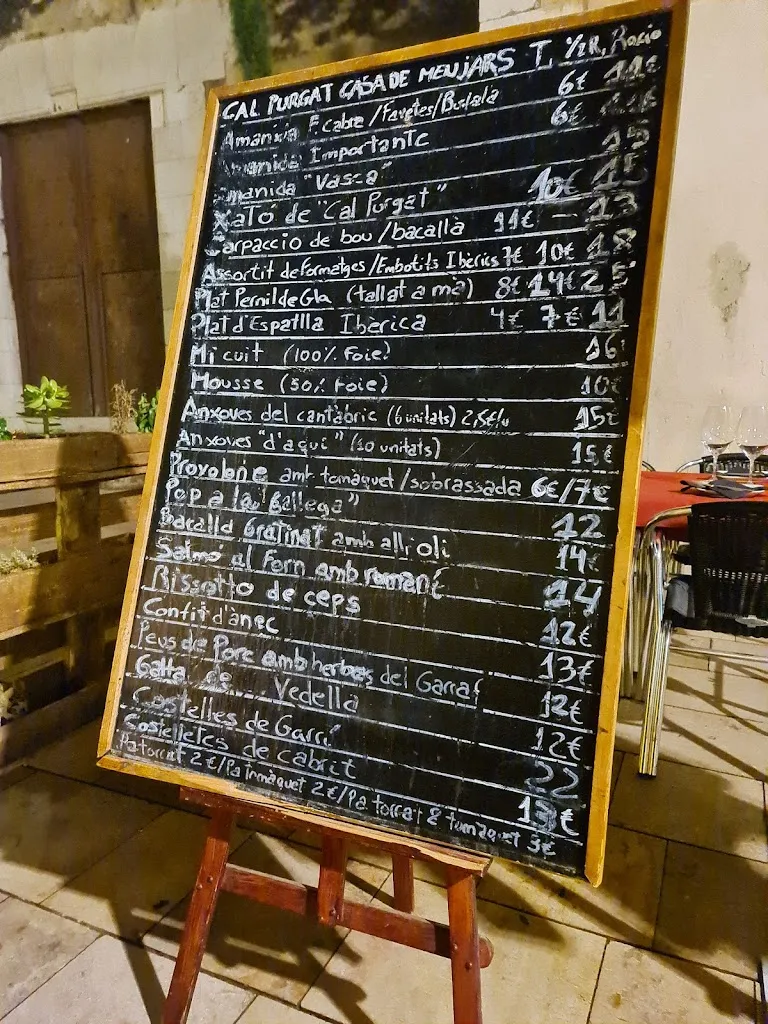 CAL PURGAT CASA DE MENJARS T. 1/2R, Racio
Amanida F. Cabra /Favetes/Burlala 6€ 11€
Amanida Importante 6€
Amanida "Vasca" 15
Xató de "Cal Purgat" 10€ 15
Carpaccio de bou /bacallà 11€ — 13
Assortit de Formatges/Embotits Ibèrics 7€ 10€ 18
Plat Pernil de Gla (tallat a mà) 8€ 14€ 25
Plat d'Espatlla Ibèrica 4€ 7€ 11
Mi cuit (100% Foie) 16
Mousse (50% Foie) 10€
Anxoves del cantàbric (6 unitats) 2,5€/u 15€
Anxoves "d'aquí" (10 unitats) 15€
Provolone amb tomàquet/sobrassada 6€/7€
Pop a la "Gallega" 12
Bacallà Gratinat amb all i oli 14€
Salmó al Forn amb romaní 14
Rissotto de ceps 12€
Confit d'ànec 13€
Peus de Porc amb herbes del Garraf 12€
Galta de Vedella 12€
Costelles de Garrí 22
Costelletes de cabrit 13€
Pa torrat 2€/Pa tomàquet 2€/Pa torrat & tomàquet 3€